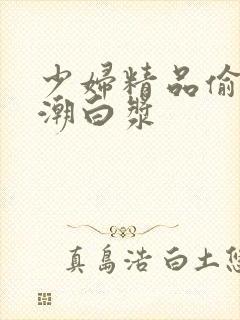 少婦精品偷
潮白漿
真島浩 白土悠